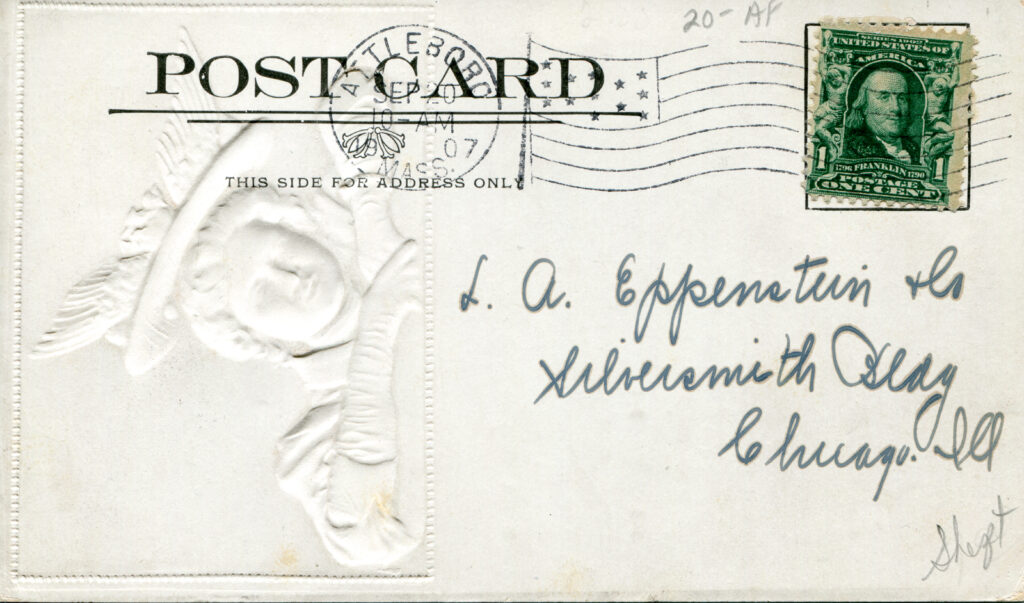 20-AF
POST CARD.
ATTLEBORO
SEP 20
10-AM
07
MASS.
THIS SIDE FOR ADDRESS ONLY
SERIES 1902
UNITED STATES OF
AMERICA
1706 FRANKLIN 1790
POSTAGE
1 ONE CENT 1
S. A. Eppenstein & Co
Silversmith Bldg
Chicago. Ill